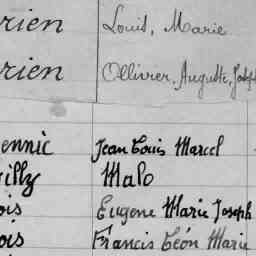 rien Louis, Marie
rien Ollivier, Auguste, Joseph
ennic Jean Louis Marcel
illy Malo
ois Eugene Marie Joseph
ois Francis Léon Marie